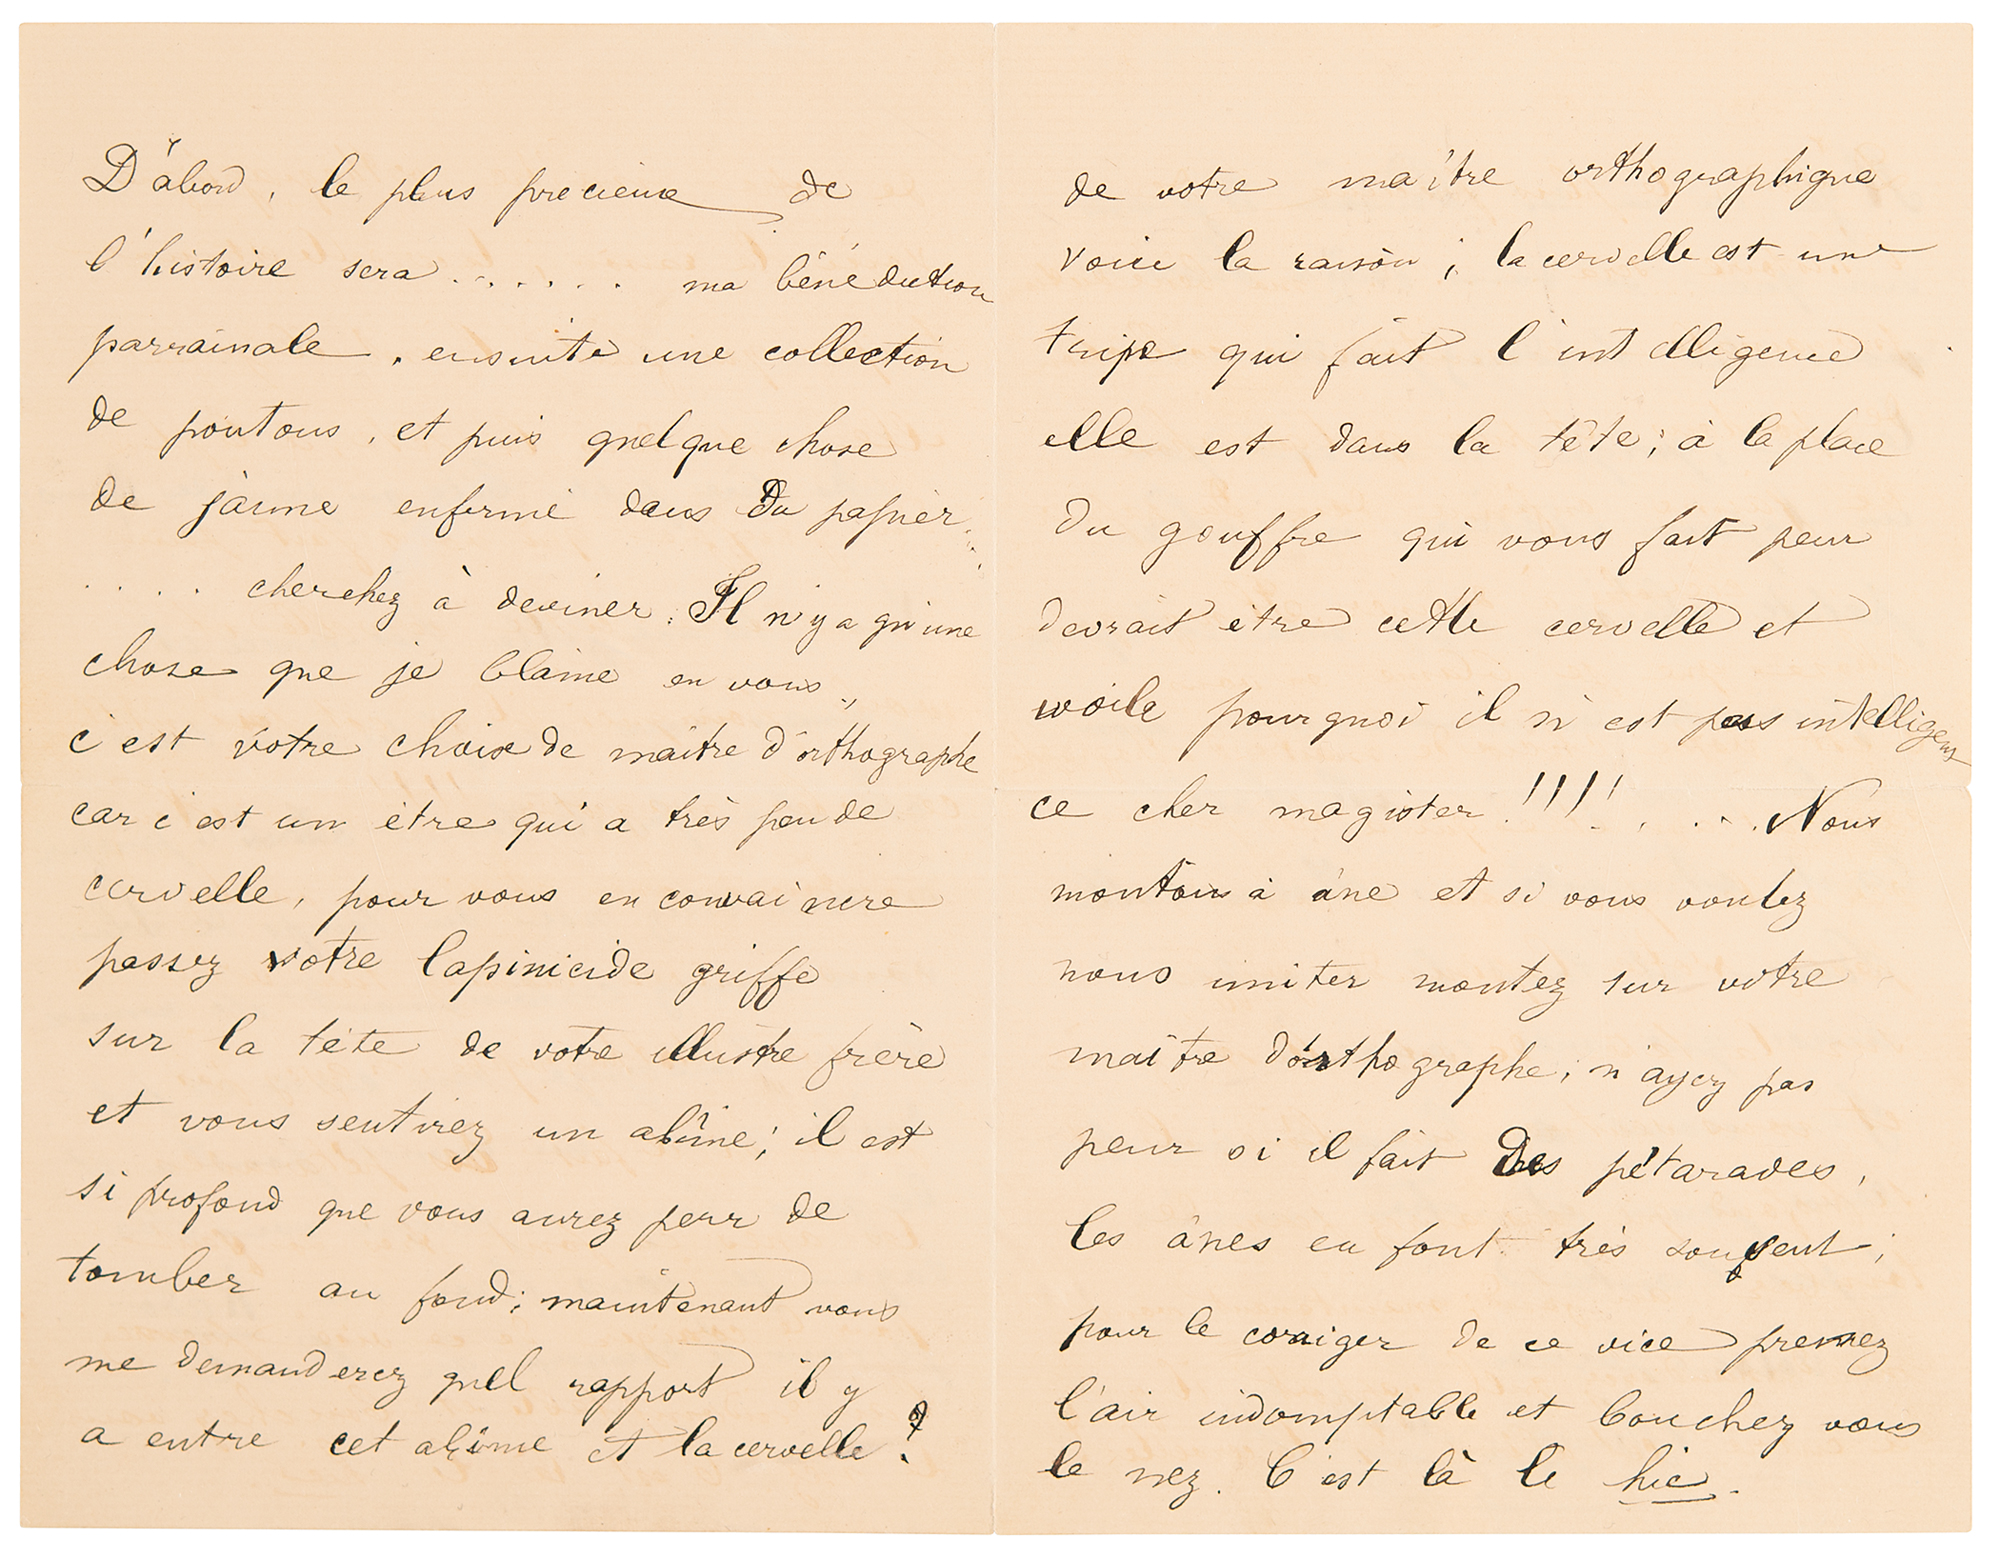 D'abord, le plus precieux de
l'histoire sera ...... ma bénédiction
parrainale, ensuite une collection
de poutous, et puis quelque chose
de jaune enfermé dans du papier..
.... cherchez à deviner. Il n'y a qu'une
chose que je blâme en vous,
c'est votre choix de maitre d'orthographe
car c'est un être qui a très peu de
cervelle, pour vous en convaincre
passez votre lapinicide griffe
sur la tête de votre illustre frère
et vous sentirez un abîme; il est
si profond que vous aurez peur de
tomber au fond; maintenant vous
me demanderez quel rapport il y
a entre cet abîme et la cervelle?
de votre maître orthographique
voici la raison; la cervelle est une
tripe qui fait l'intelligence
elle est dans la tête; à la place
du gouffre qui vous fait peur
devrait être cette cervelle et
woile pourquoi il n'est pas intelligent
ce cher magister!!!! .... Nous
montons à âne et si vous voulez
nous imiter montez sur votre
maître d'orthographe; n'ayez pas
peur si il fait des pétarades,
les ânes en font très souvent;
pour le corriger de ce vice prenez
l'air indomptable et bouchez vous
le nez. C'est là le hic.